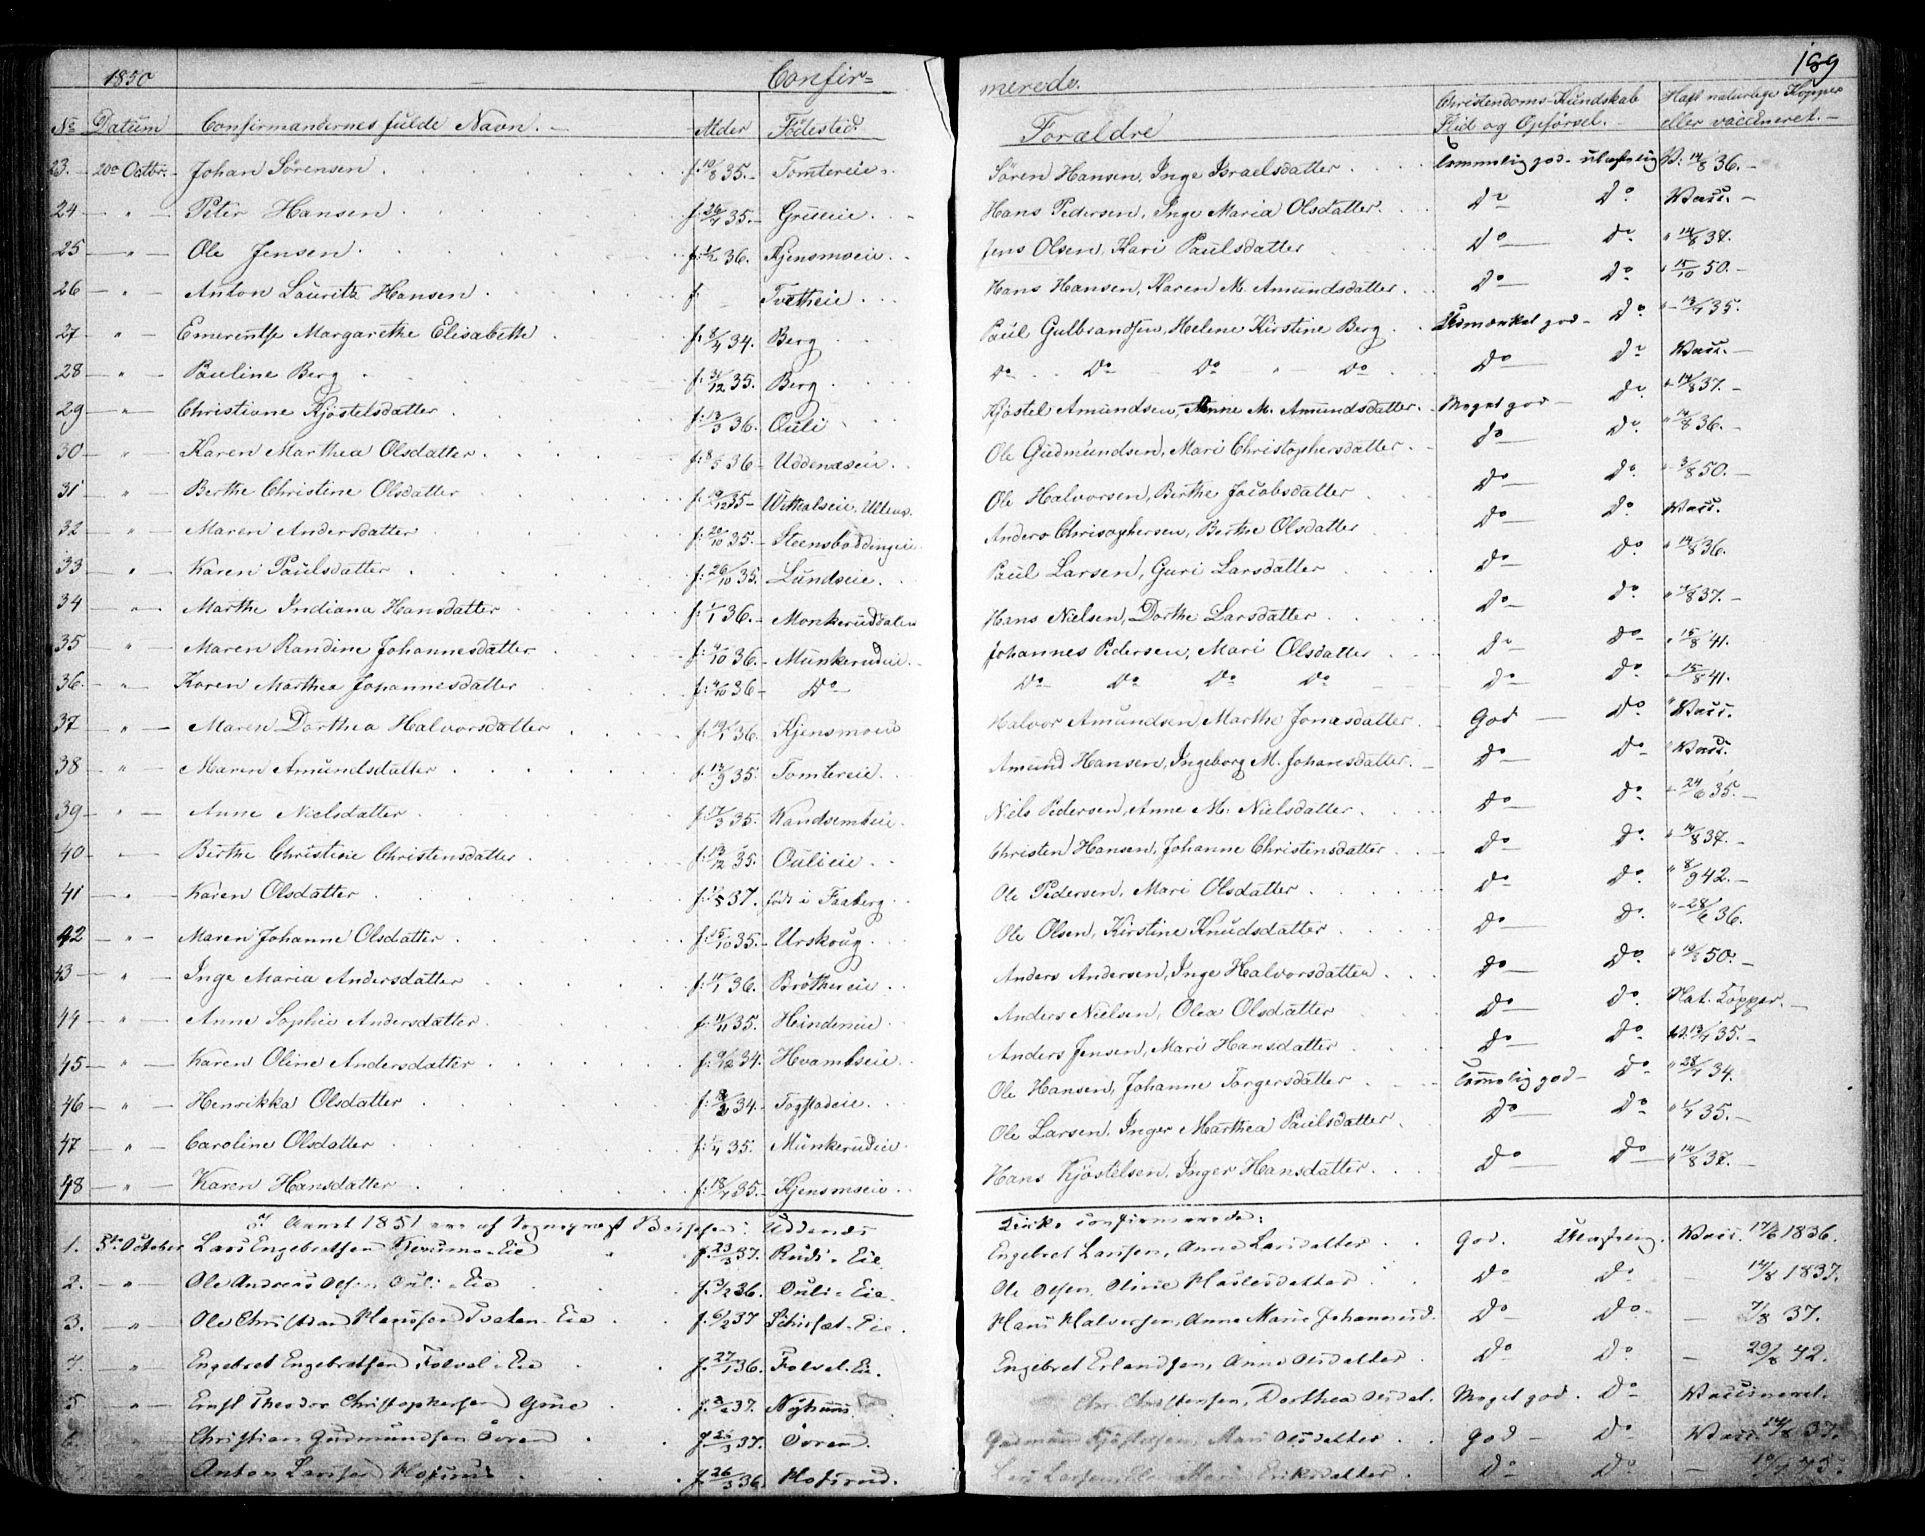 1850 Confir= merede. 189
No Datum Confirmandernes fulde Navn. Alder Fødested. Forældre Christendoms-Kundskab Flid og Opførsel. Haft naturlige Kopper eller vaccineret.
23. 20de Octbr. Johan Sørensen f. 10/8 35. Tomtereie. Søren Hansen, Inge Israelsdatter Temmelig god - ulastelig V. 14/8 36.
24 " Peter Hansen f. 26/7 35. Grueeie. Hans Pedersen, Inge Maria Olsdatter. Do Do Vacc.
25 " Ole Jensen f. 36. Kjensmoeie. Jens Olsen, Kari Paulsdatter Do Do " 14/8 37.
26 " Anton Lauritz Hansen f. Tvetheie Hans Hansen, Karen M. Amundsdatter Do Do " 15/10 50.
27 " Emerentse Margarethe Elisabethe f. 8/4 34. Berg Paul Gulbrandsen, Helene Kirstine Berg Udmærket god Do 13/7 35.
28 " Pauline Berg f. 31/12 35. Berg. Do Do Do Do Do Do Vacc.
29 " Christiane Kjøstelsdatter f. 13/3 36. Ouli Kjøstel Amundsen, Anne M. Amundsdatter. Meget god Do " 14/8 37.
30 " Karen Marthea Olsdatter f. 8/5 36 Uddenæseie Ole Gudmundsen, Mari Christophersdatter Do Do " 14/8 36.
31 " Berthe Christine Olsdatter f. 19/12 35 Withalseie, Ullens. Ole Halvorsen, Berthe Jacobsdatter Do Do " 3/8 50.
32 " Maren Andersdatter f. 20/10 35. Steensboddingeie Anders Chrisophersen, Berthe Olsdatter Do Do Vacc.
33 " Karen Paulsdatter f. 26/10 35. Lundseie. Paul Larsen, Guri Larsdatter Do Do " 14/8 36.
34 " Marthe Indiana Hansdatter f. 1/1 36. Monkeruddalen Hans Nielsen, Dorthe Larsdatter Do Do 37.
35 " Maren Randine Johannesdatter f. 4/10 36. Munkerudeie. Johannes Pedersen, Mari Olsdatter Do Do 15/8 41.
36. " Karen Marthea Johannesdatter f. 4/10 36 Do Do Do Do Do Do Do 15/8 41.
37 " Maren Dorthea Halvorsdatter f. 19/1 36. Kjensmoeie Halvor Amundsen, Marthe Jonasdatter. God Do " Vacc.
38 " Maren Amundsdatter f. 13/9 35. Tomtereie. Amund Hansen, Ingeborg M. Johansdatter. Do Do " Vacc.
39 " Anne Nielsdatter f. 17/3 35. Kandsembeie. Niels Pedersen, Anne M. Nielsdatter Do Do 24/6 35.
40 Berthe Christine Christensdatter f. 13/12 35. Oulieie Christen Hansen, Johanne Christensdatter Do Do " 14/8 37.
41 " Karen Olsdatter f. 37. født i Faaberg Ole Pedersen, Mari Olsdatter Do Do " 8/9 42.
42 " Maren Johanne Olsdatter f. 15/10 35. Urskoug. Ole Olsen, Kirstine Knudsdatter Do Do " 28/6 36.
43 " Inge Maria Andersdatter f. 36. Brøthereie Anders Andersen, Inge Halvorsdatter Do Do " 19/8 50.
44 " Anne Sophie Andersdatter f. 35. Heindereie Anders Nielsen, Olea Olsdatter Do Do Nat. Kopper.
45 " Karen Oline Andersdatter f. 34. Hvambseie Anders Jensen, Mari Hansdatter Do Do 13/7 35.
46 " Henrikka Olsdatter f. 34. Fogstadeie. Ole Hansen, Johanne Torgersdatter Temmelig god Do " 28/7 34.
47 " Caroline Olsdatter f. 35. Munkerudeie Ole Larsen, Inger Marthea Paulsdatter Do Do 35.
48 " Karen Hansdatter f. 18/7 35. Kjensmoeie Hans Kjøstelsen, Inger Hansdatter Do Do " 14/8 37.
I Aaret 1851 ere af Sognepræst Uddenæs Kirke confirmerede:
1. 5te October Lars Engebretsen Kjensmo-Eie f. 23/3 37. Ruds-Eie Engebret Larssen, Anne Larsdatter God. Ulastelig. Vacc. 17/6 1836.
2. " Ole Andreas Olsen Ouli-Eie f. 36. Ouli-Eie. Ole Olsen, Oline Do Do 14/8 1837.
3. " Ole Christian Hanssen Tveten-Eie f. 37 Eie. Hans Halvorsen, Anne Marie Johannesd. Do Do 7/8 37.
4. " Engebret Engebretsen Folval-Eie f. 27/1 36. Folval-Eie. Engebret Erlandsen, Anne Olsdatter Do Do 29/8 42.
5 " Ernst Theodor Christophersen f. 37. Chr. Christensen, Dorthea Olsdat. Meget god. Do Vaccineret.
6. " Christian Gudmundsen Ovren f. 37. Ovren. Gudmund Kjøstelsen, Mari Olsdatter God Do Vacc. 14/8 37.
Anton Larssen Hofsrud f. 26/3 36. Hofsrud. Lars Larssen, Marie Eriksdatter Do Do